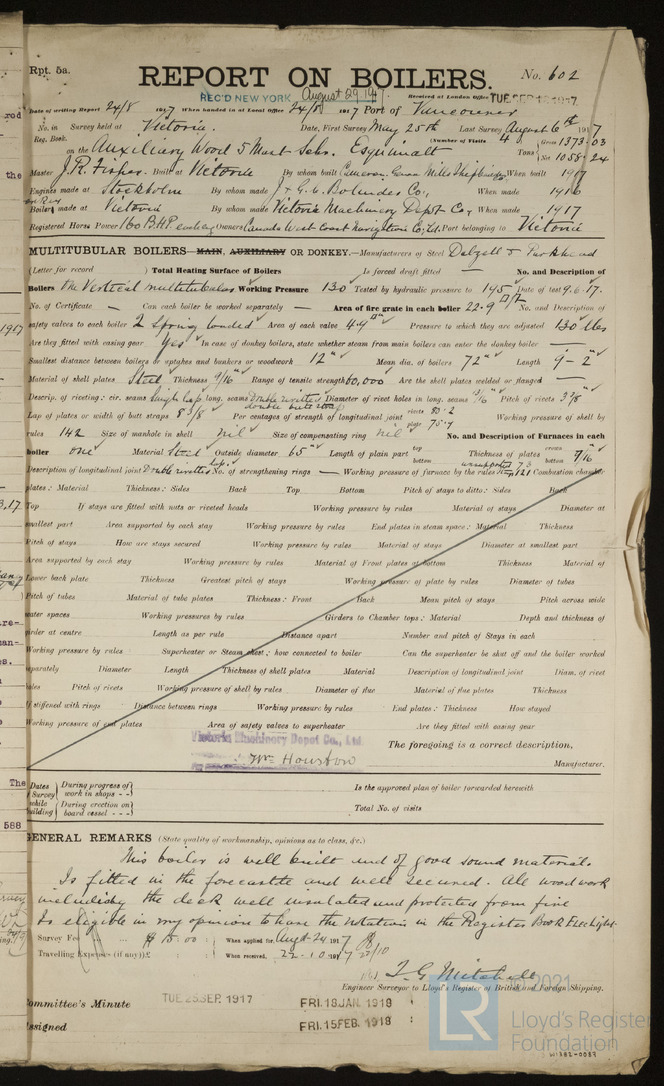 Rpt. 5a.
REPORT ON BOILERS.
No. 602
REC'D NEW YORK August 29 1917
Received at London Office TUE. SEP. 1917
Date of writing Report 24/8 1917 When handed in at Local Office 24/8 1917 Port of Vancouver
No. in Survey held at Victoria. Date, First Survey May 25th Last Survey August 6th 1917
Reg. Book. (Number of Visits 4)
on the Auxiliary Wood 5 Mast Schr. Esquimalt Tons Gross 1373.03
Net 1058.24
Master J. R. Fisher. Built at Victoria By whom built Cameron Genoa Mills Shipbuilders When built 1917
Engines made at Stockholm By whom made J & G. C. Bolinders Co., When made 1916
Boilers made at Victoria By whom made Victoria Machinery Depot Co, When made 1917
Registered Horse Power 160 B.H.P. each eng Owners Canada West Coast Navigation Co, Ltd. Port belonging to Victoria
MULTITUBULAR BOILERS MAIN, AUXILIARY OR DONKEY.—Manufacturers of Steel Dalzell & Parkhead
(Letter for record ) Total Heating Surface of Boilers Is forced draft fitted — No. and Description of
Boilers One Vertical multitubular Working Pressure 130 Tested by hydraulic pressure to 195 Date of test 9.6.17.
No. of Certificate — Can each boiler be worked separately — Area of fire grate in each boiler 22.9 No. and Description of
safety valves to each boiler 2 Spring loaded Area of each valve 4.9 Pressure to which they are adjusted 130 lbs
Are they fitted with easing gear Yes In case of donkey boilers, state whether steam from main boilers can enter the donkey boiler —
Smallest distance between boilers or uptakes and bunkers or woodwork 12" Mean dia. of boilers 72" Length 9-2"
Material of shell plates Steel Thickness 9/16" Range of tensile strength 60,000 Are the shell plates welded or flanged —
Descrip. of riveting: cir. seams Single lap long. seams Double riveted double butt strap Diameter of rivet holes in long. seams 13/16" Pitch of rivets 3 7/8"
Lap of plates or width of butt straps 8 3/8 Per centages of strength of longitudinal joint rivets 80.2
plate 75.9 Working pressure of shell by
rules 142 Size of manhole in shell nil Size of compensating ring nil No. and Description of Furnaces in each
boiler one Material Steel Outside diameter 65" Length of plain part top
bottom Thickness of plates crown
bottom 9/16
Description of longitudinal joint Double riveted lap. No. of strengthening rings — Working pressure of furnace by the rules 121 Combustion chamber
plates: Material Thickness: Sides Back Top Bottom Pitch of stays to ditto: Sides Back
Top If stays are fitted with nuts or riveted heads Working pressure by rules Material of stays Diameter at
smallest part Area supported by each stay Working pressure by rules End plates in steam space: Material Thickness
Pitch of stays How are stays secured Working pressure by rules Material of stays Diameter at smallest part
Area supported by each stay Working pressure by rules Material of Front plates at bottom Thickness Material of
Lower back plate Thickness Greatest pitch of stays Working pressure of plate by rules Diameter of tubes
Pitch of tubes Material of tube plates Thickness: Front Back Mean pitch of stays Pitch across wide
water spaces Working pressures by rules Girders to Chamber tops: Material Depth and thickness of
girder at centre Length as per rule Distance apart Number and pitch of Stays in each
Working pressure by rules Superheater or Steam chest; how connected to boiler Can the superheater be shut off and the boiler worked
separately Diameter Length Thickness of shell plates Material Description of longitudinal joint Diam. of rivet
holes Pitch of rivets Working pressure of shell by rules Diameter of flue Material of flue plates Thickness
If stiffened with rings Distance between rings Working pressure by rules End plates: Thickness How stayed
Working pressure of end plates Area of safety valves to superheater Are they fitted with easing gear
Victoria Machinery Depot Co., Ltd.
The foregoing is a correct description,
Wm Houston Manufacturer.
Dates of Survey while building During progress of work in shops - - Is the approved plan of boiler forwarded herewith
During erection on board vessel - - - Total No. of visits
GENERAL REMARKS (State quality of workmanship, opinions as to class, &c.)
This boiler is well built and of good sound materials
Is fitted in the forecastle and well secured. All woodwork
including the deck well insulated and protected from fire
Is eligible in my opinion to have the notation in the Register Book
Survey Fee ... $ 15.00 : When applied for, Augt 24 1917
Travelling Expenses (if any) £ : : When received, 22-10-1917 22/10
T. G. Mitchell
Engineer Surveyor to Lloyd's Register of British and Foreign Shipping.
Committee's Minute TUE 25 SEP. 1917 FRI. 18 JAN. 1918
Assigned FRI. 15 FEB. 1918
2021
LR Lloyd's Register
Foundation
W1382-0087
1917
The
588